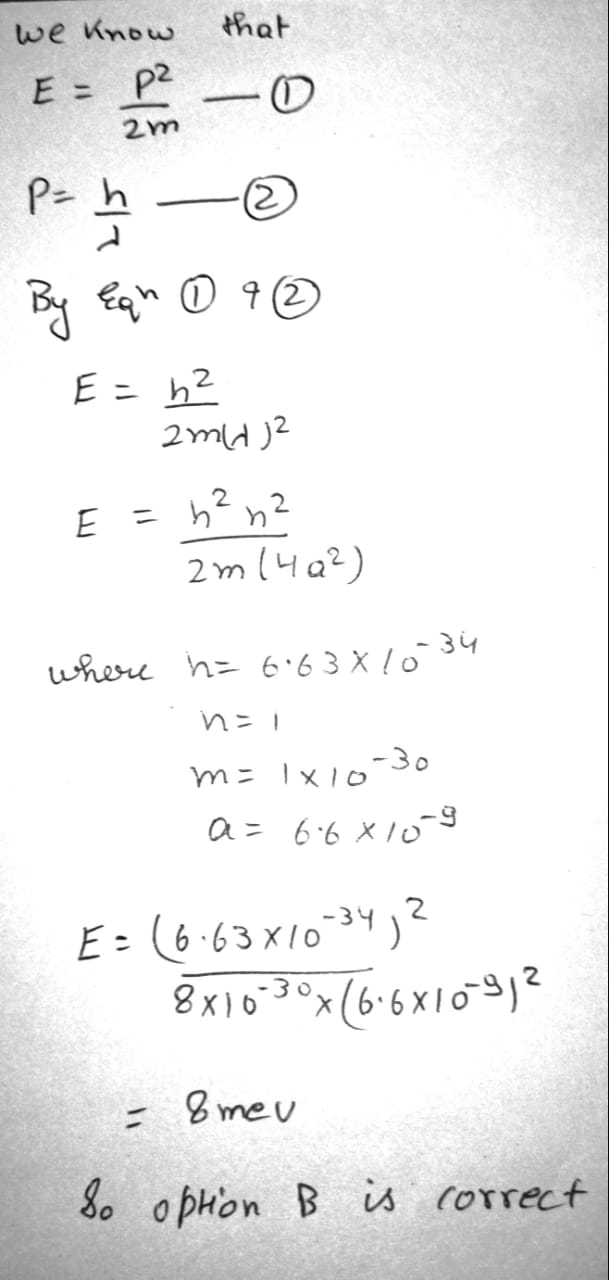 we know that
E = P²/2m — ①
P = h/λ — ②
By Eqn ① & ②
E = h²/2m(λ)²
E = h²n²/2m(4a²)
where h = 6.63 × 10⁻³⁴
n = 1
m = 1 × 10⁻³⁰
a = 6.6 × 10⁻⁹
E = (6.63 × 10⁻³⁴)²/8 × 10⁻³⁰ × (6.6 × 10⁻⁹)²
= 8 mev
So option B is correct